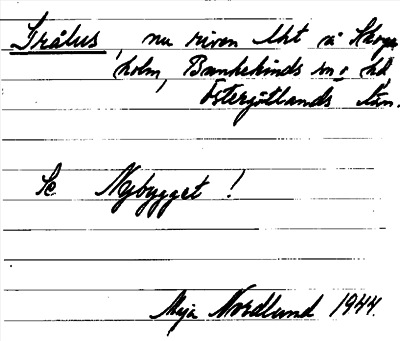 Grålus, nu riven lht å Skogs-
holm, Bankekinds sn o hd,
Östergötlands län.
Se Nybygget!
Maja Nordlund 1944.